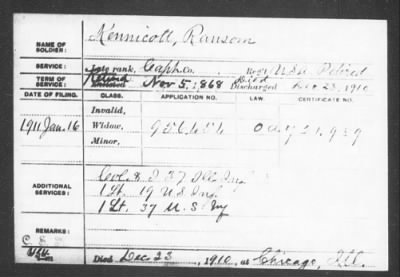 Kennicott, Ransom
NAME OF SOLDIER:
SERVICE: Late rank, Capt. Co. , Reg't U.S.A. Retired
TERM OF SERVICE: Retired Enlisted Nov 5, 1868 Died Discharged Dec 23, 1910
DATE OF FILING. CLASS. APPLICATION NO. LAW. CERTIFICATE NO.
Invalid,
1911 Jan. 16 Widow,
Minor,
ADDITIONAL SERVICES:
Col. & I 37 Ills Inf
1 Lt. 19 U.S Inf
1 Lt. 37 U.S Inf
REMARKS:
Died Dec 23, 1910, at Chicago, Ill.